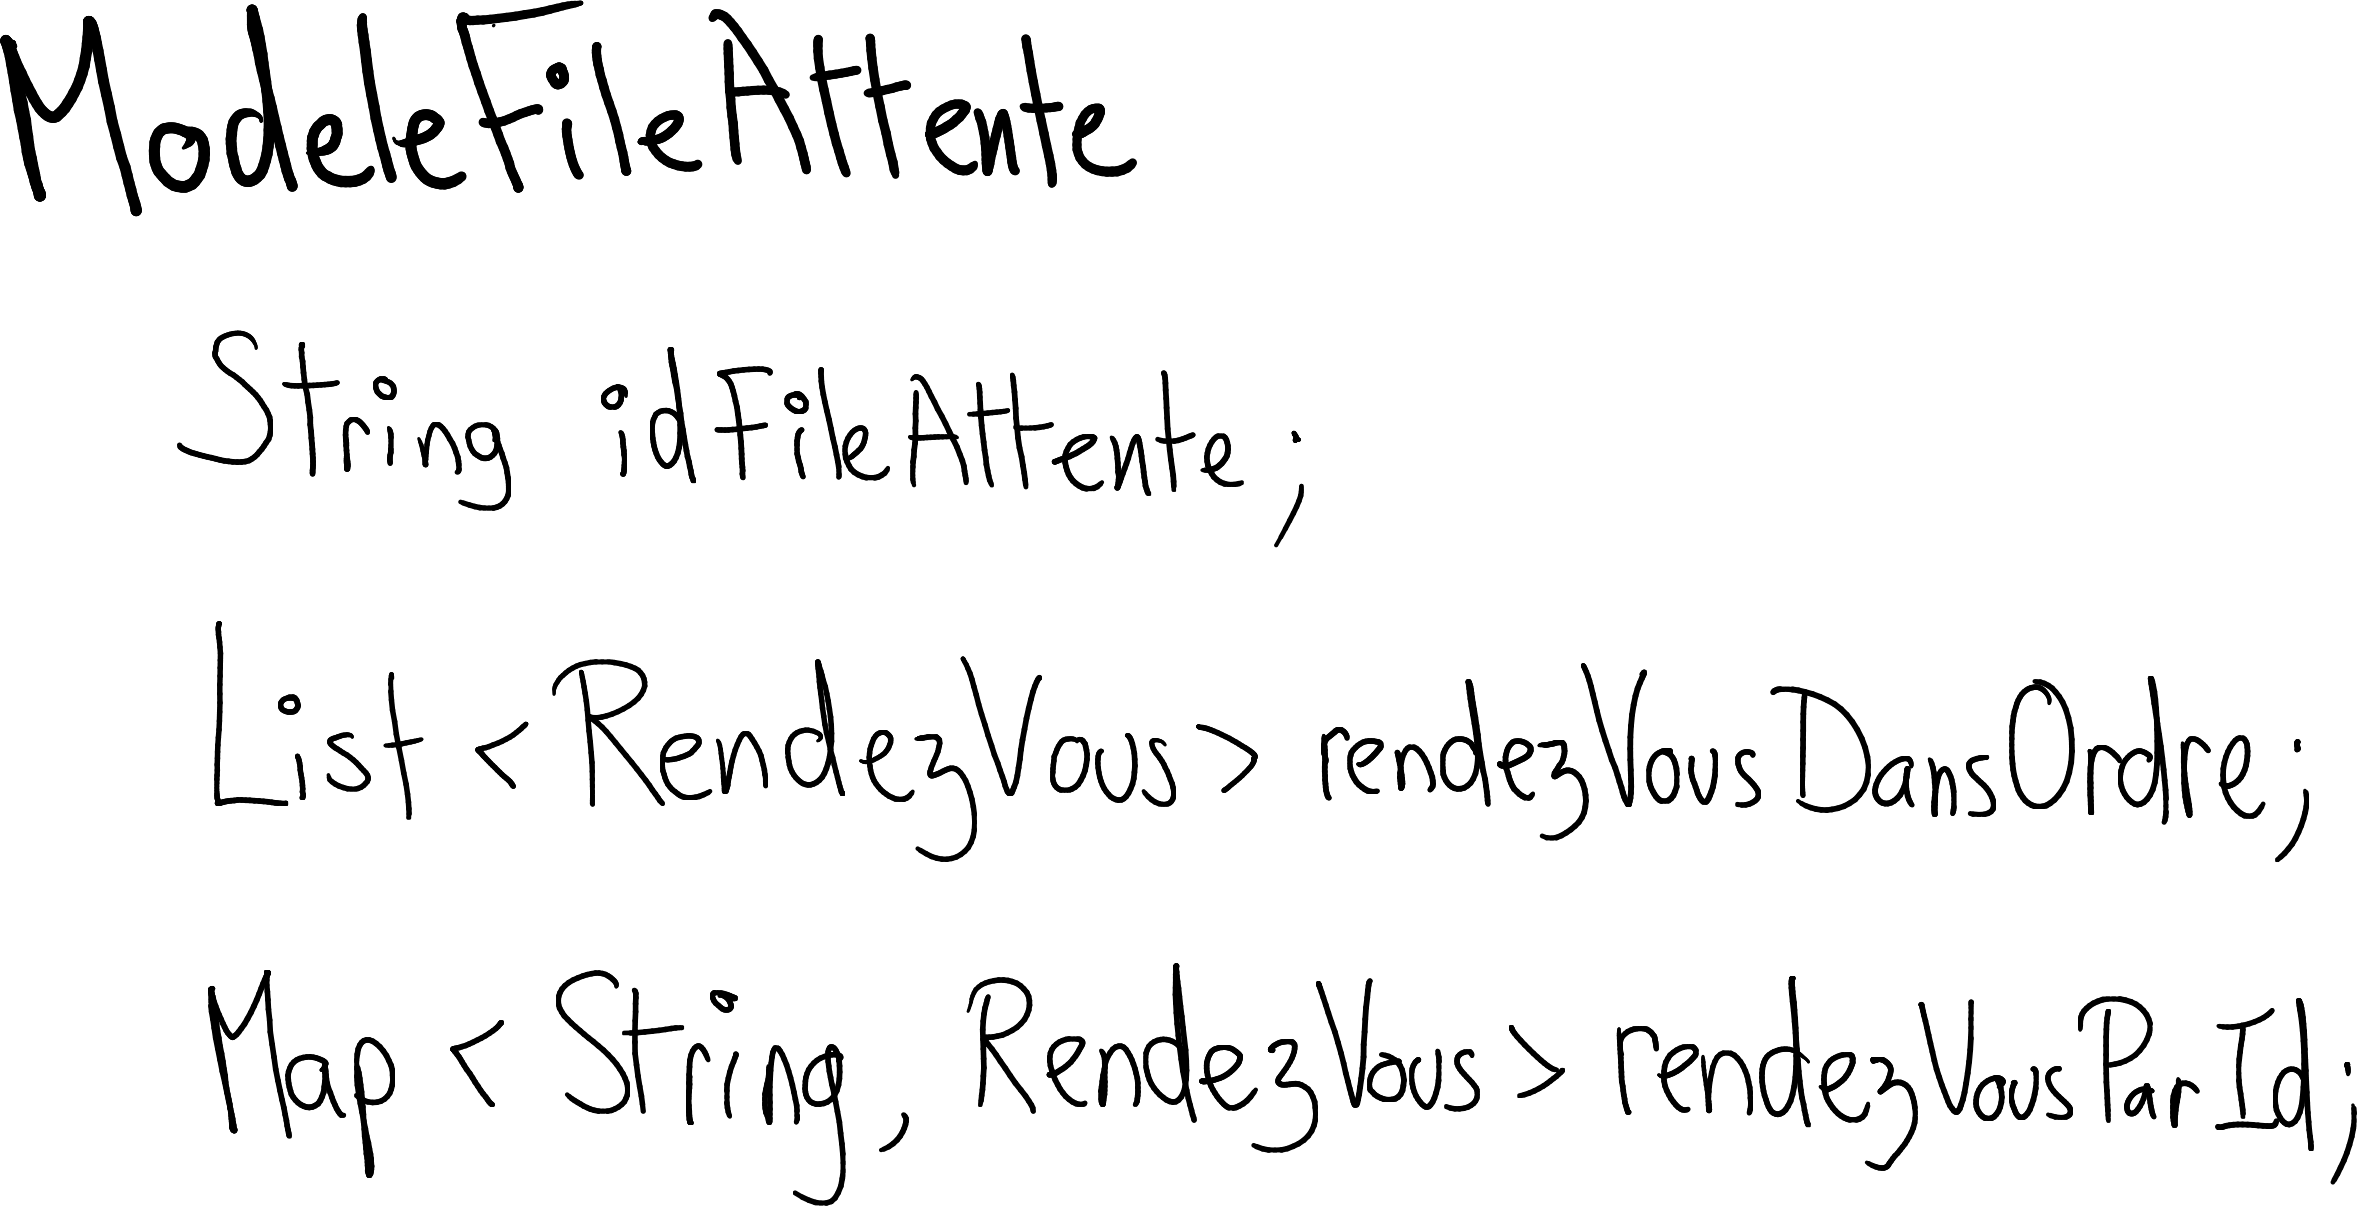 ModeleFileAttente
String idFileAttente;
List <RendezVous> rendezVousDansOrdre;
Map <String, RendezVous> rendezVousParId;